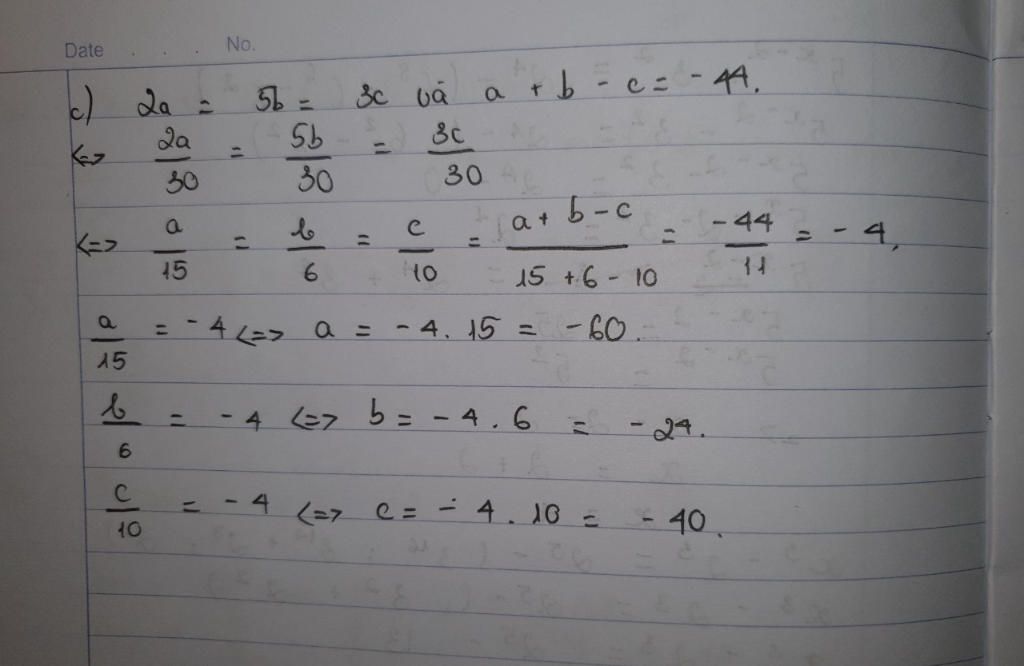 Date . . . No.
c) 2a = 5b = 3c và a + b - c = - 44.
<=> 2a/30 = 5b/30 = 3c/30
<=> a/15 = b/6 = c/10 = (a + b - c)/(15 + 6 - 10) = -44/11 = - 4,
a/15 = - 4 <=> a = - 4. 15 = - 60.
b/6 = - 4 <=> b = - 4 . 6 = - 24.
c/10 = - 4 <=> c = - 4 . 10 = - 40.